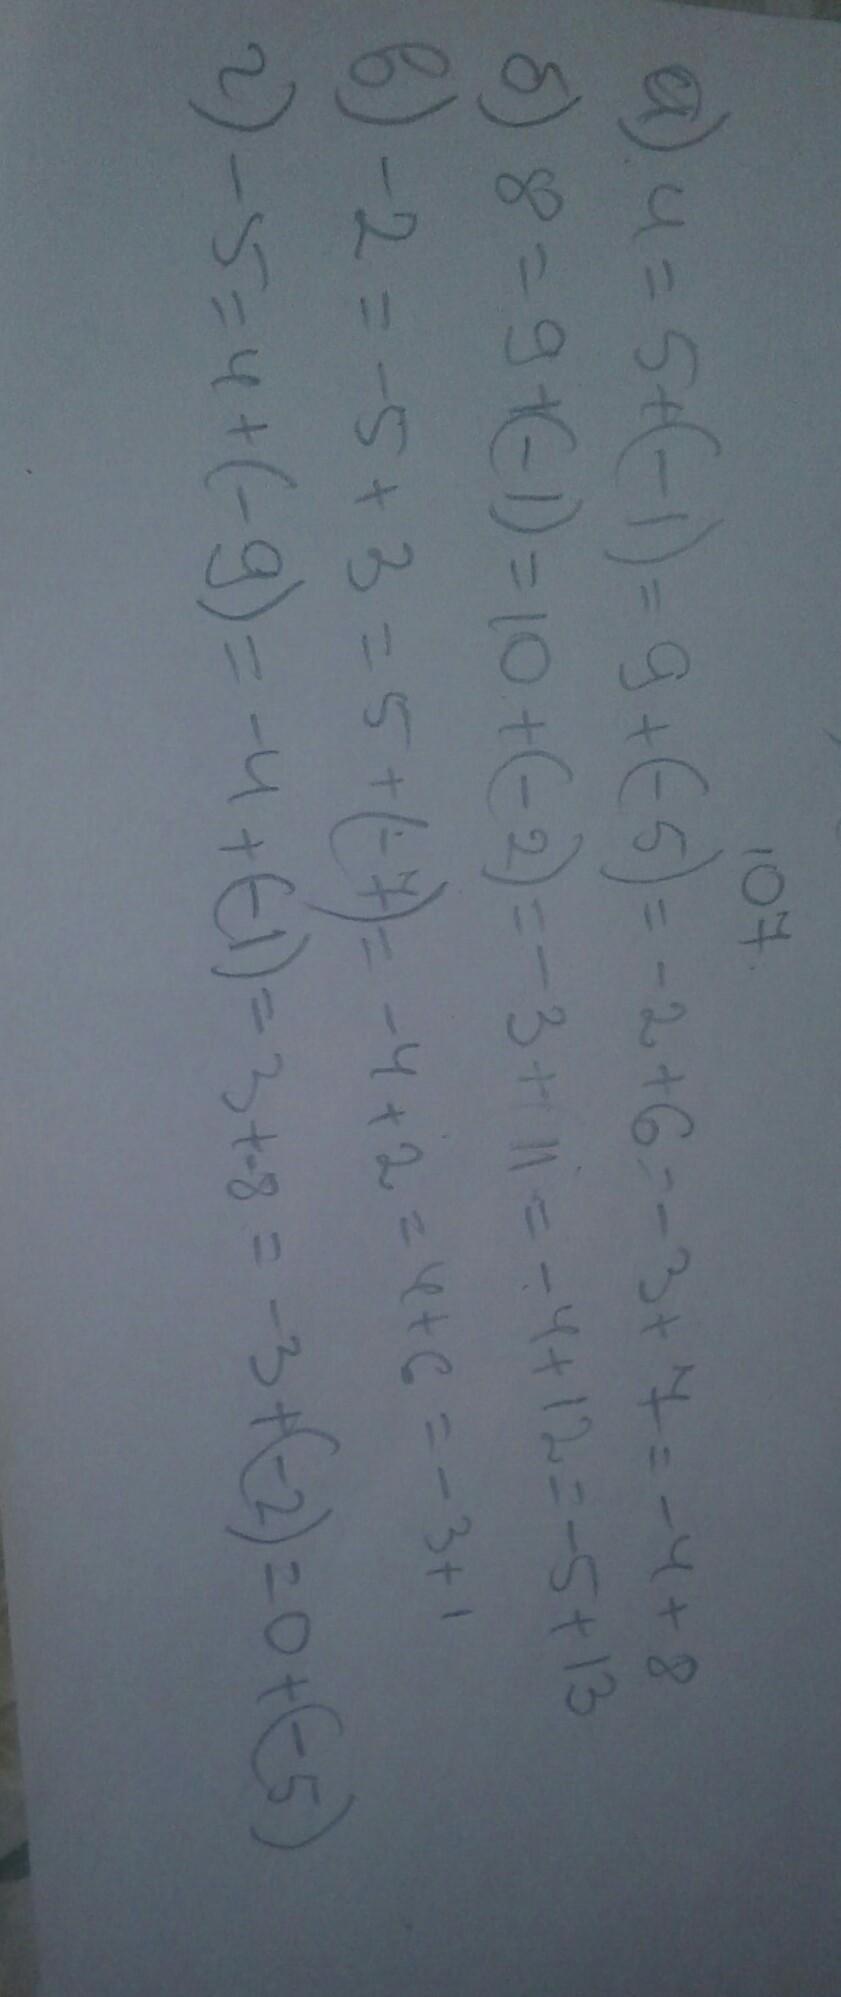 107.
а) 4 = 5+(-1) = 9+(-5) = -2+6 = -3+7 = -4+8
б) 8 = 9+(-1) = 10+(-2) = -3+11 = -4+12 = -5+13
в) -2 = -5+3 = 5+(-7) = -4+2 = 4+6 = -3+1
г) -5 = 4+(-9) = -4+(-1) = 3+-8 = -3+(-2) = 0+(-5)